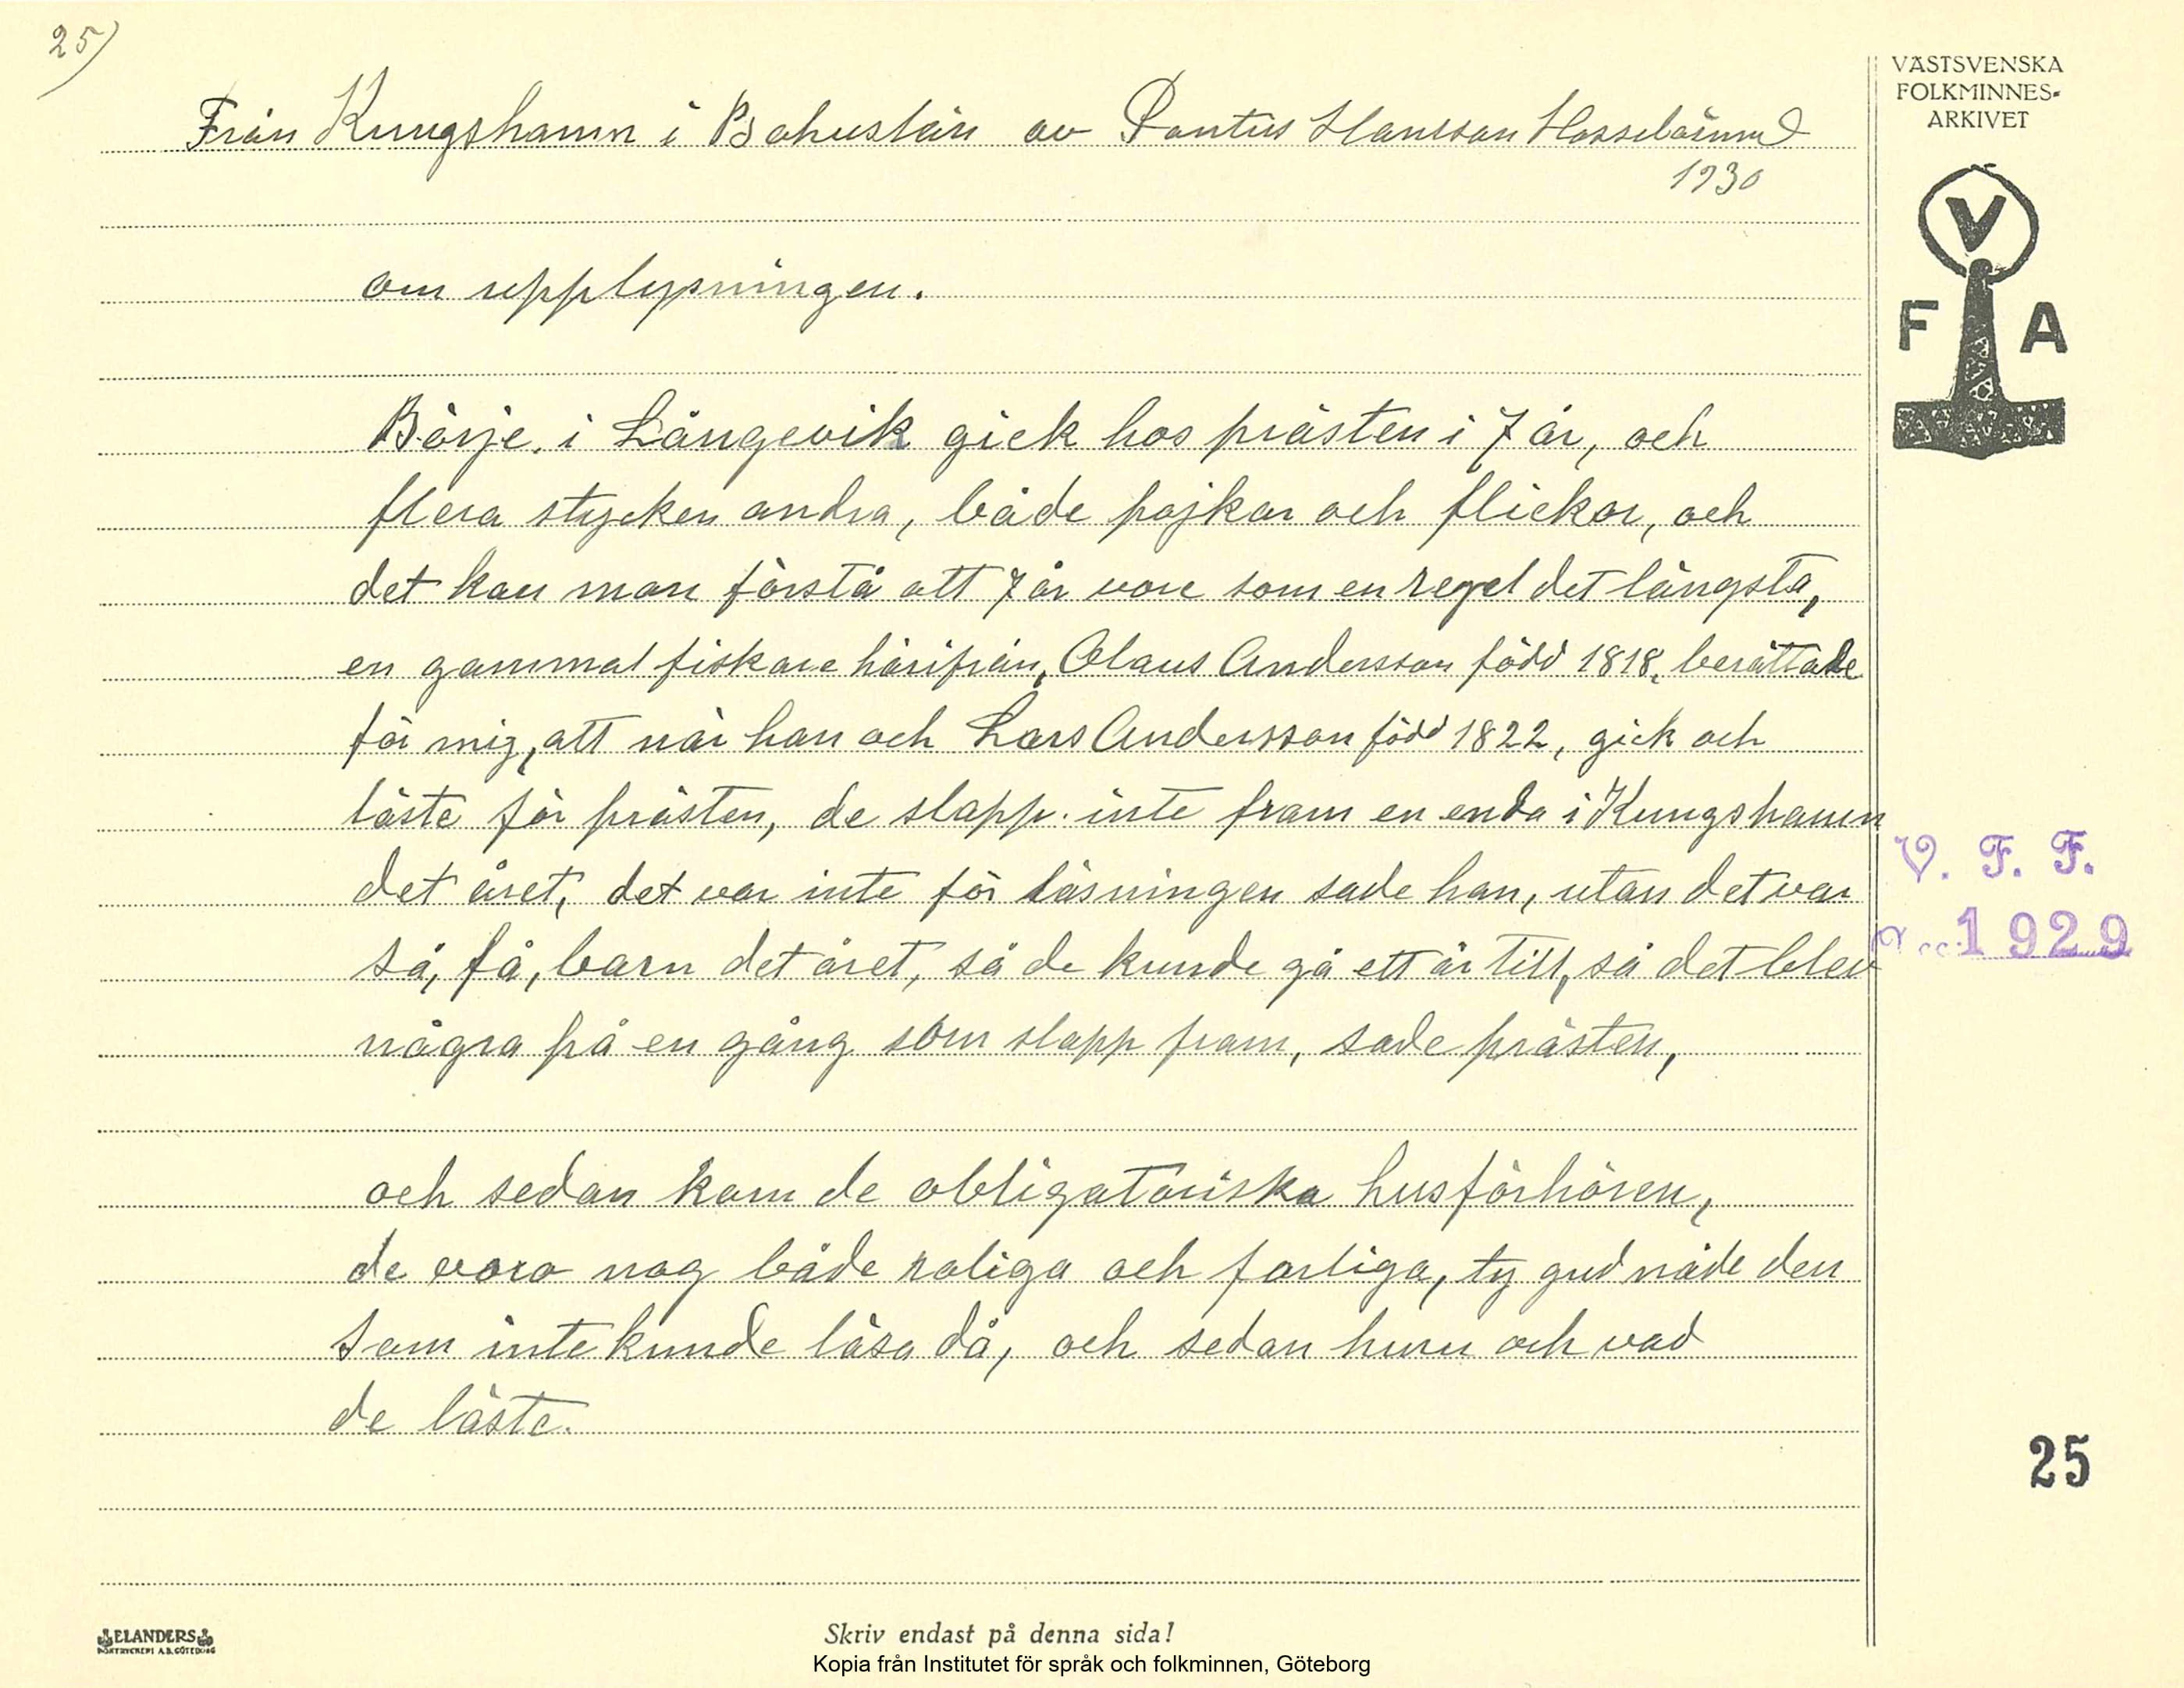 25)
Från Kungshamn i Bohuslän av Pontus Hansson Hasselösund
1930
VÄSTSVENSKA
FOLKMINNES-
ARKIVET
V
F A
om upplysningen.
Börje, i Långevik gick hos prästen i 7 år, och
flera stycken andra, både pojkar och flickor, och
det kan man förstå att 7 år vore som en regel det längsta,
en gammal fiskare härifrån, Olaus Andersson född 1818, berättade
för mig, att när han och Lars Andersson född 1822, gick och
läste för prästen, de slapp inte fram en enda i Kungshamn
det året, det var inte för läsningen sade han, utan det var
så, få, barn det året, så de kunde gå ett år till, så det blev
några på en gång som slapp fram, sade prästen,
och sedan kom de obligatoriska husförhören,
de voro nog både roliga och farliga, ty gud nåde den
som inte kunde läsa då, och sedan huru och vad
de läste.
V. F. F.
1929
25
ELANDERS
BOKTRYCKERI A.B. GÖTEBORG
Skriv endast på denna sida!
Kopia från Institutet för språk och folkminnen, Göteborg